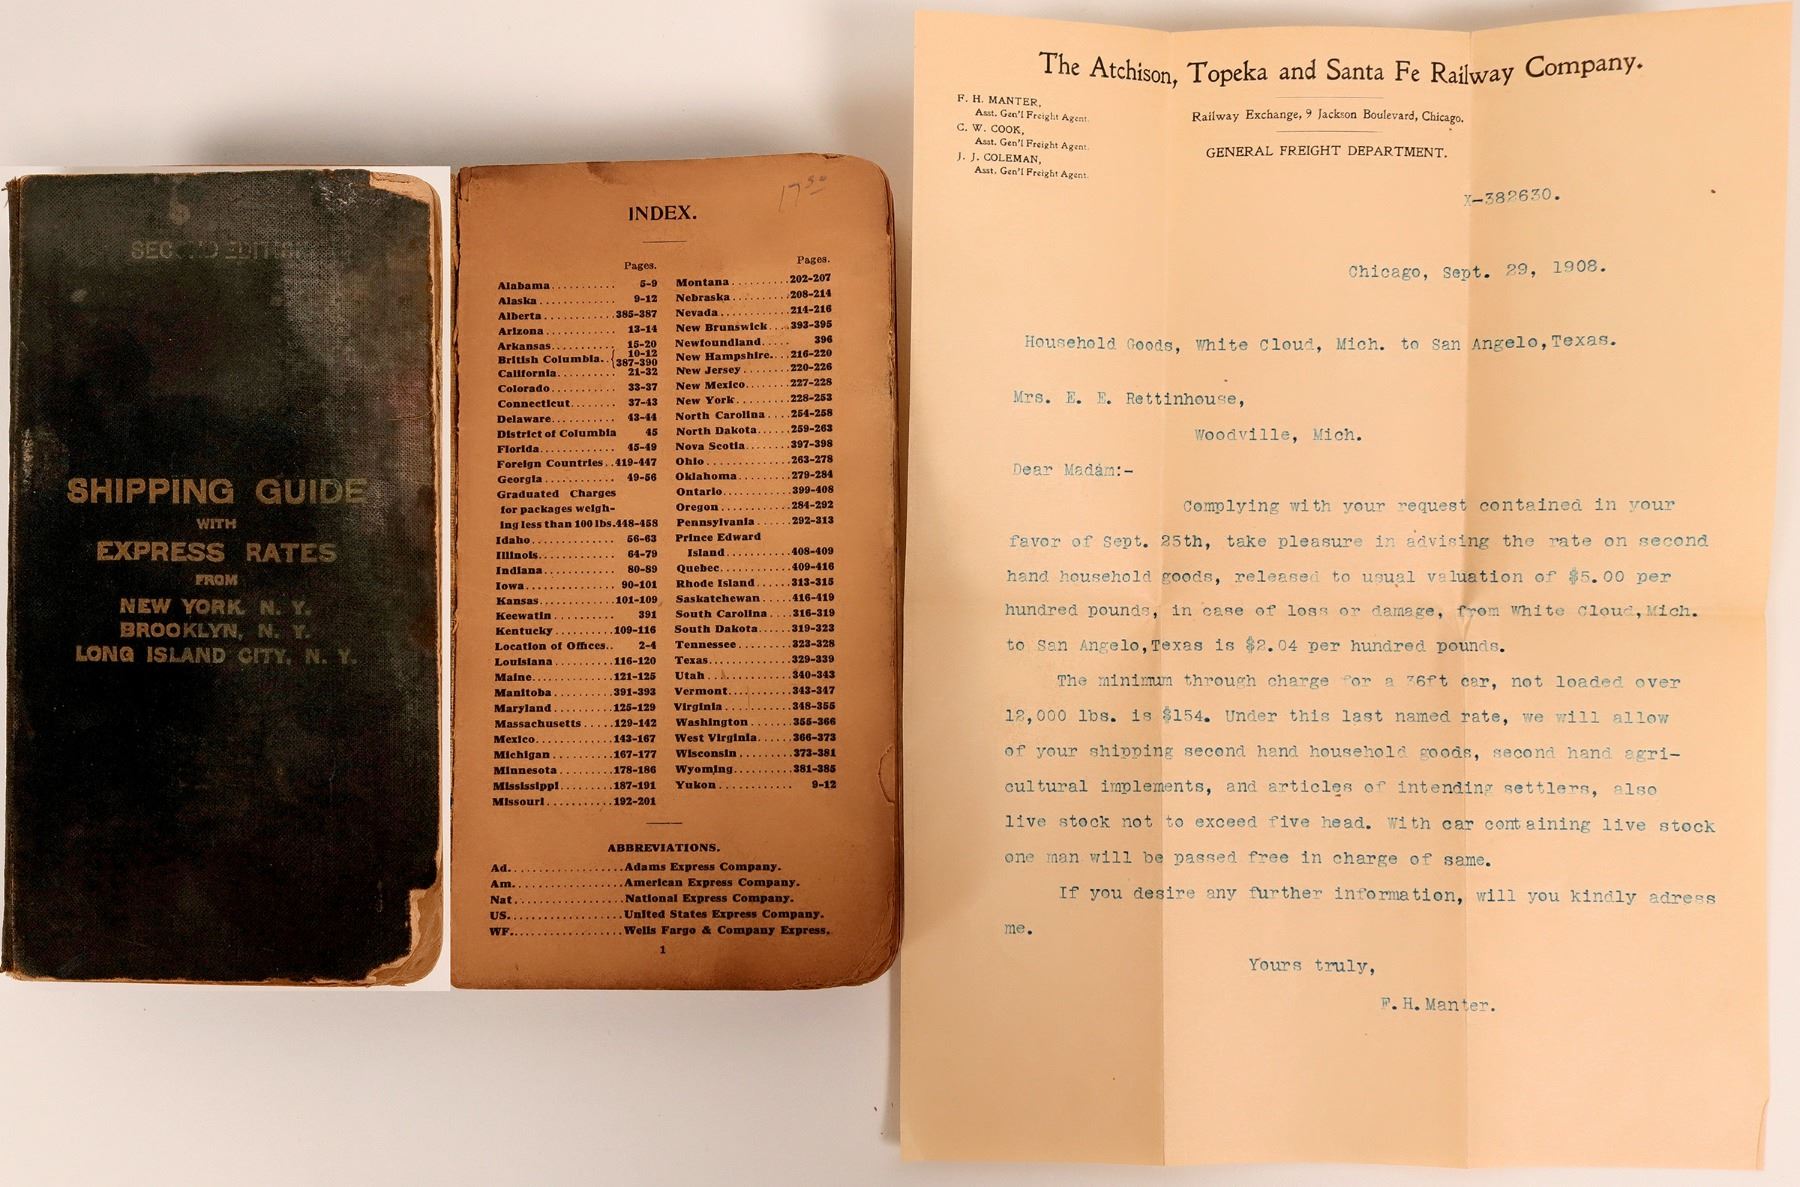 SECOND EDITION
SHIPPING GUIDE
WITH
EXPRESS RATES
FROM
NEW YORK, N. Y.
BROOKLYN, N. Y.
LONG ISLAND CITY, N. Y.
17 50
INDEX.
Pages.
Alabama.......... 5-9
Alaska............ 9-12
Alberta............385-387
Arizona........... 13-14
Arkansas.......... 15-20
British Columbia..{ 10-12
387-390
California......... 21-32
Colorado.......... 33-37
Connecticut....... 37-43
Delaware.......... 43-44
District of Columbia 45
Florida............ 45-49
Foreign Countries..419-447
Georgia........... 49-56
Graduated Charges
for packages weigh-
ing less than 100 lbs.448-458
Idaho............. 56-63
Illinois............ 64-79
Indiana........... 80-89
Iowa.............. 90-101
Kansas............101-109
Keewatin.......... 391
Kentucky..........109-116
Location of Offices.. 2-4
Louisiana..........116-120
Maine.............121-125
Manitoba..........391-393
Maryland..........125-129
Massachusetts.....129-142
Mexico............143-167
Michigan..........167-177
Minnesota.........178-186
Mississippi.........187-191
Missouri...........192-201
Pages.
Montana..........202-207
Nebraska.........208-214
Nevada...........214-216
New Brunswick...393-395
Newfoundland..... 396
New Hampshire...216-220
New Jersey.......220-226
New Mexico.......227-228
New York.........228-253
North Carolina....254-258
North Dakota.....259-263
Nova Scotia.......397-398
Ohio..............263-278
Oklahoma.........279-284
Ontario...........399-408
Oregon...........284-292
Pennsylvania......292-313
Prince Edward
Island..........408-409
Quebec...........409-416
Rhode Island......313-315
Saskatchewan.....416-419
South Carolina....316-319
South Dakota.....319-323
Tennessee........323-328
Texas.............329-339
Utah..............340-343
Vermont..........343-347
Virginia...........348-355
Washington.......355-366
West Virginia.....366-373
Wisconsin........373-381
Wyoming.........381-385
Yukon............ 9-12
ABBREVIATIONS.
Ad....................Adams Express Company.
Am....................American Express Company.
Nat...................National Express Company.
US....................United States Express Company.
WF....................Wells Fargo & Company Express.
1
The Atchison, Topeka and Santa Fe Railway Company.
F. H. MANTER,
Asst. Gen'l Freight Agent.
C. W. COOK,
Asst. Gen'l Freight Agent.
J. J. COLEMAN,
Asst. Gen'l Freight Agent.
Railway Exchange, 9 Jackson Boulevard, Chicago.
GENERAL FREIGHT DEPARTMENT.
X-382630.
Chicago, Sept. 29, 1908.
Household Goods, White Cloud, Mich. to San Angelo,Texas.
Mrs. E. E. Rettinhouse,
Woodville, Mich.
Dear Madam:-
Complying with your request contained in your
favor of Sept. 25th, take pleasure in advising the rate on second
hand household goods, released to usual valuation of $5.00 per
hundred pounds, in case of loss or damage, from White Cloud,Mich.
to San Angelo,Texas is $2.04 per hundred pounds.
The minimum through charge for a 36ft car, not loaded over
12,000 lbs. is $154. Under this last named rate, we will allow
of your shipping second hand household goods, second hand agri-
cultural implements, and articles of intending settlers, also
live stock not to exceed five head. With car containing live stock
one man will be passed free in charge of same.
If you desire any further information, will you kindly adress
me.
Yours truly,
F.H.Manter.